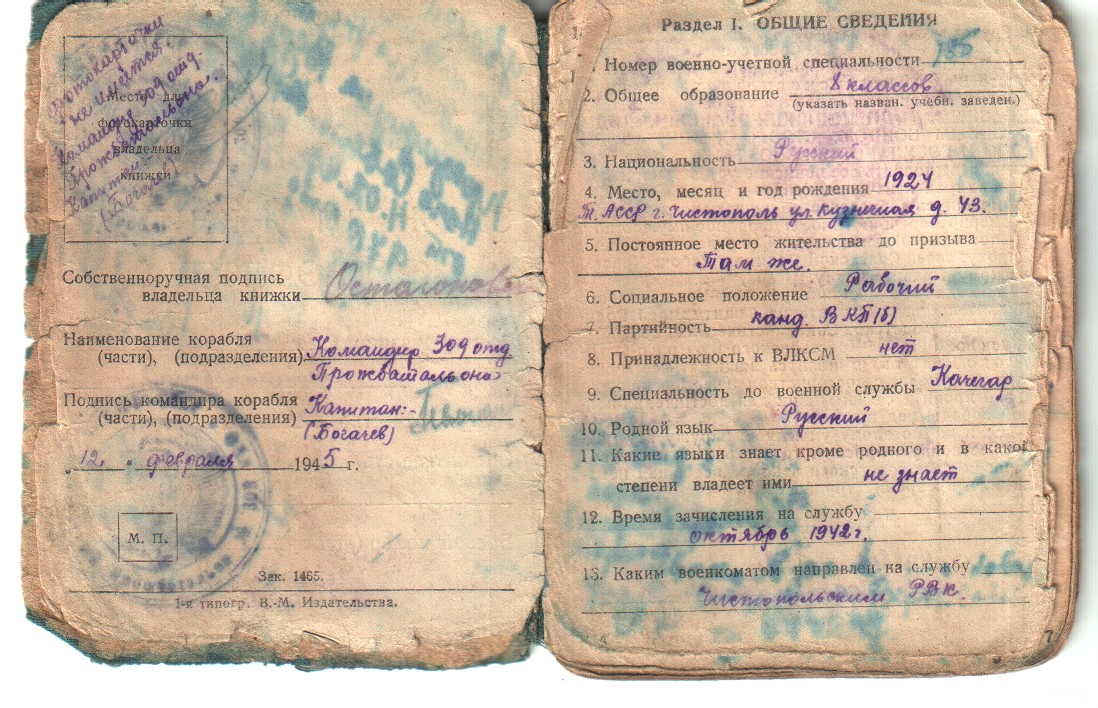 Фотокарточки
не имеется.
Командир 30й отд.
Прожбатальона.
Капитан:-
(Богачев)
Место для
фотокарточки
владельца
книжки
Собственноручная подпись
владельца книжки
Наименование корабля
(части), (подразделения) Командир 30й отд
Прожбатальона
Подпись командира корабля
(части), (подразделения) Капитан:-
(Богачев)
"12" февраля 1945 г.
М. П.
Зак. 1465.
1-я типогр. В.-М. Издательства.
Раздел I. ОБЩИЕ СВЕДЕНИЯ
1. Номер военно-учетной специальности
2. Общее образование 8 классов
(указать назван. учебн. заведен.)
3. Национальность Русский
4. Место, месяц и год рождения 1924
Т. АССР г. Чистополь ул. Кузнечная д. 43.
5. Постоянное место жительства до призыва
Там же.
6. Социальное положение Рабочий
7. Партийность канд. ВКП(б)
8. Принадлежность к ВЛКСМ нет
9. Специальность до военной службы Качегар
10. Родной язык Русский
11. Какие языки знает кроме родного и в какой
степени владеет ими не знает
12. Время зачисления на службу
октябрь 1942 г.
13. Каким военкоматом направлен на службу
Чистопольским РВК.
7